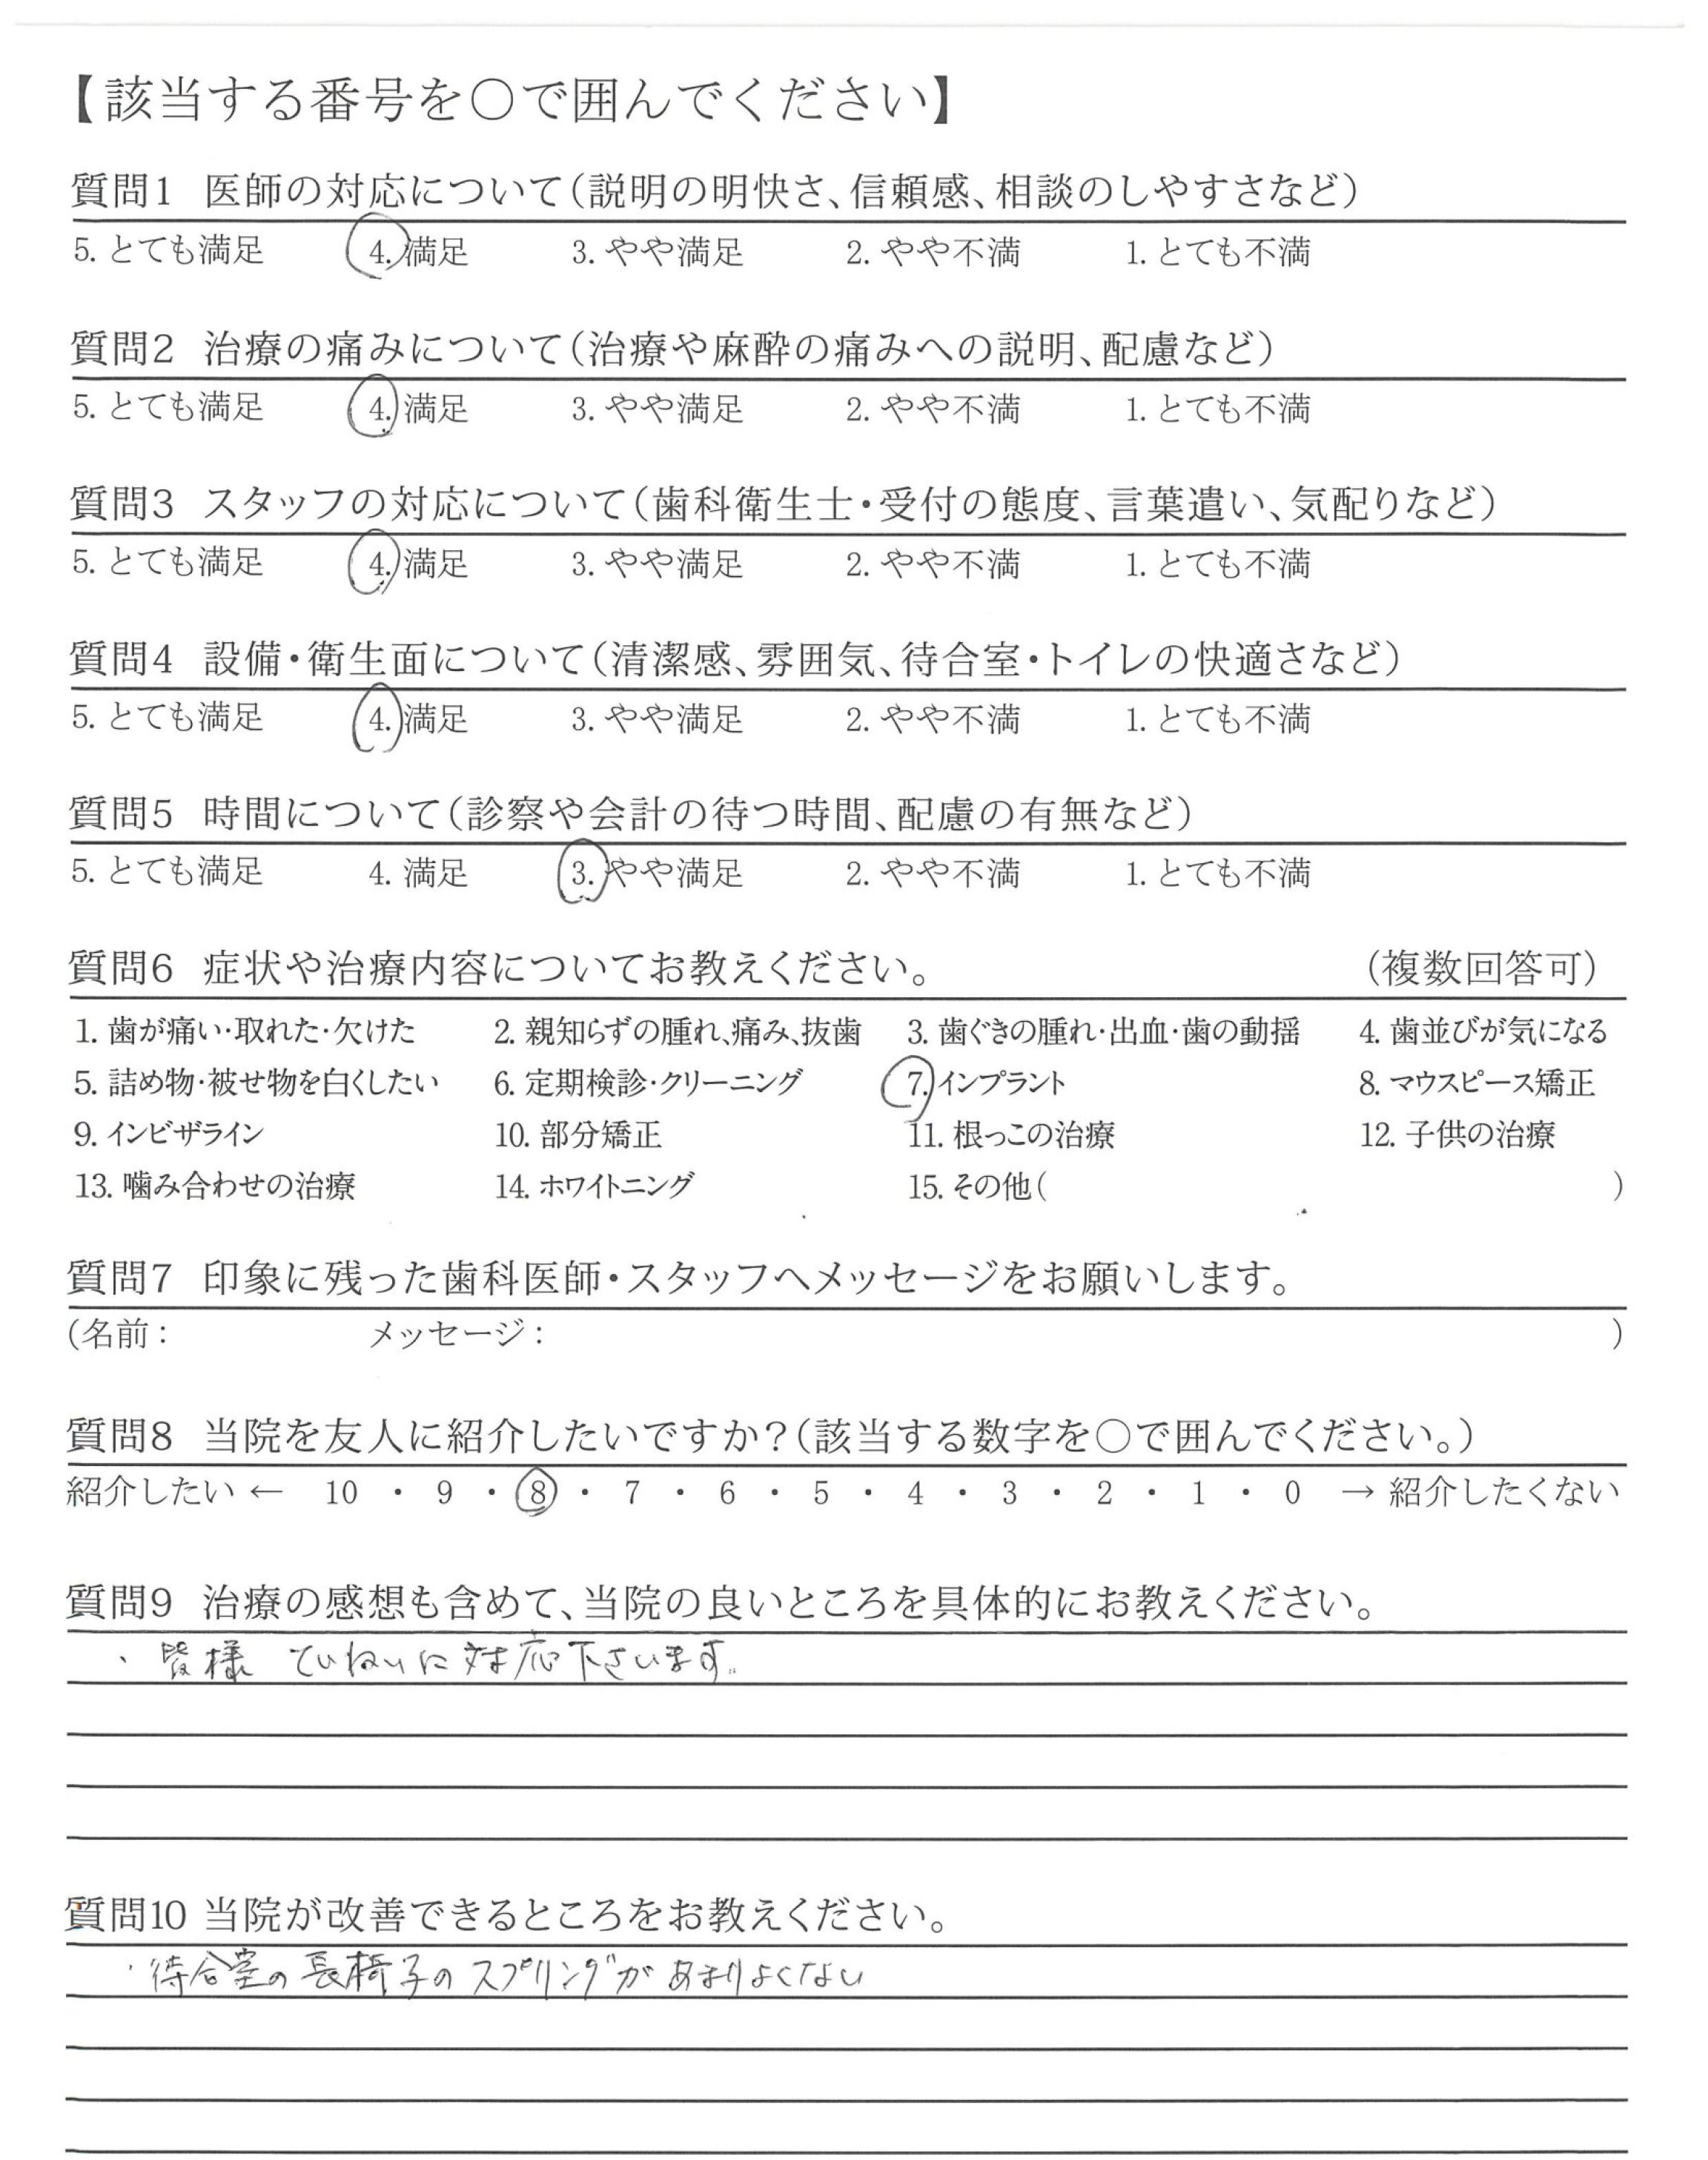 【該当する番号を〇で囲んでください】
質問1 医師の対応について（説明の明快さ、信頼感、相談のしやすさなど）
5. とても満足 4. 満足 3. やや満足 2. やや不満 1. とても不満
質問2 治療の痛みについて（治療や麻酔の痛みへの説明、配慮など）
5. とても満足 4. 満足 3. やや満足 2. やや不満 1. とても不満
質問3 スタッフの対応について（歯科衛生士・受付の態度、言葉遣い、気配りなど）
5. とても満足 4. 満足 3. やや満足 2. やや不満 1. とても不満
質問4 設備・衛生面について（清潔感、雰囲気、待合室・トイレの快適さなど）
5. とても満足 4. 満足 3. やや満足 2. やや不満 1. とても不満
質問5 時間について（診察や会計の待つ時間、配慮の有無など）
5. とても満足 4. 満足 3. やや満足 2. やや不満 1. とても不満
質問6 症状や治療内容についてお教えください。 （複数回答可）
1. 歯が痛い・取れた・欠けた 2. 親知らずの腫れ、痛み、抜歯 3. 歯ぐきの腫れ・出血・歯の動揺 4. 歯並びが気になる
5. 詰め物・被せ物を白くしたい 6. 定期検診・クリーニング 7. インプラント 8. マウスピース矯正
9. インビザライン 10. 部分矯正 11. 根っこの治療 12. 子供の治療
13. 噛み合わせの治療 14. ホワイトニング 15. その他（ ）
質問7 印象に残った歯科医師・スタッフへメッセージをお願いします。
（名前： メッセージ： ）
質問8 当院を友人に紹介したいですか？（該当する数字を〇で囲んでください。）
紹介したい ← 10 ・ 9 ・ 8 ・ 7 ・ 6 ・ 5 ・ 4 ・ 3 ・ 2 ・ 1 ・ 0 → 紹介したくない
質問9 治療の感想も含めて、当院の良いところを具体的にお教えください。
・皆様 ていねいに対応下さいます。
質問10 当院が改善できるところをお教えください。
・待合室の長椅子のスプリングがあまりよくない